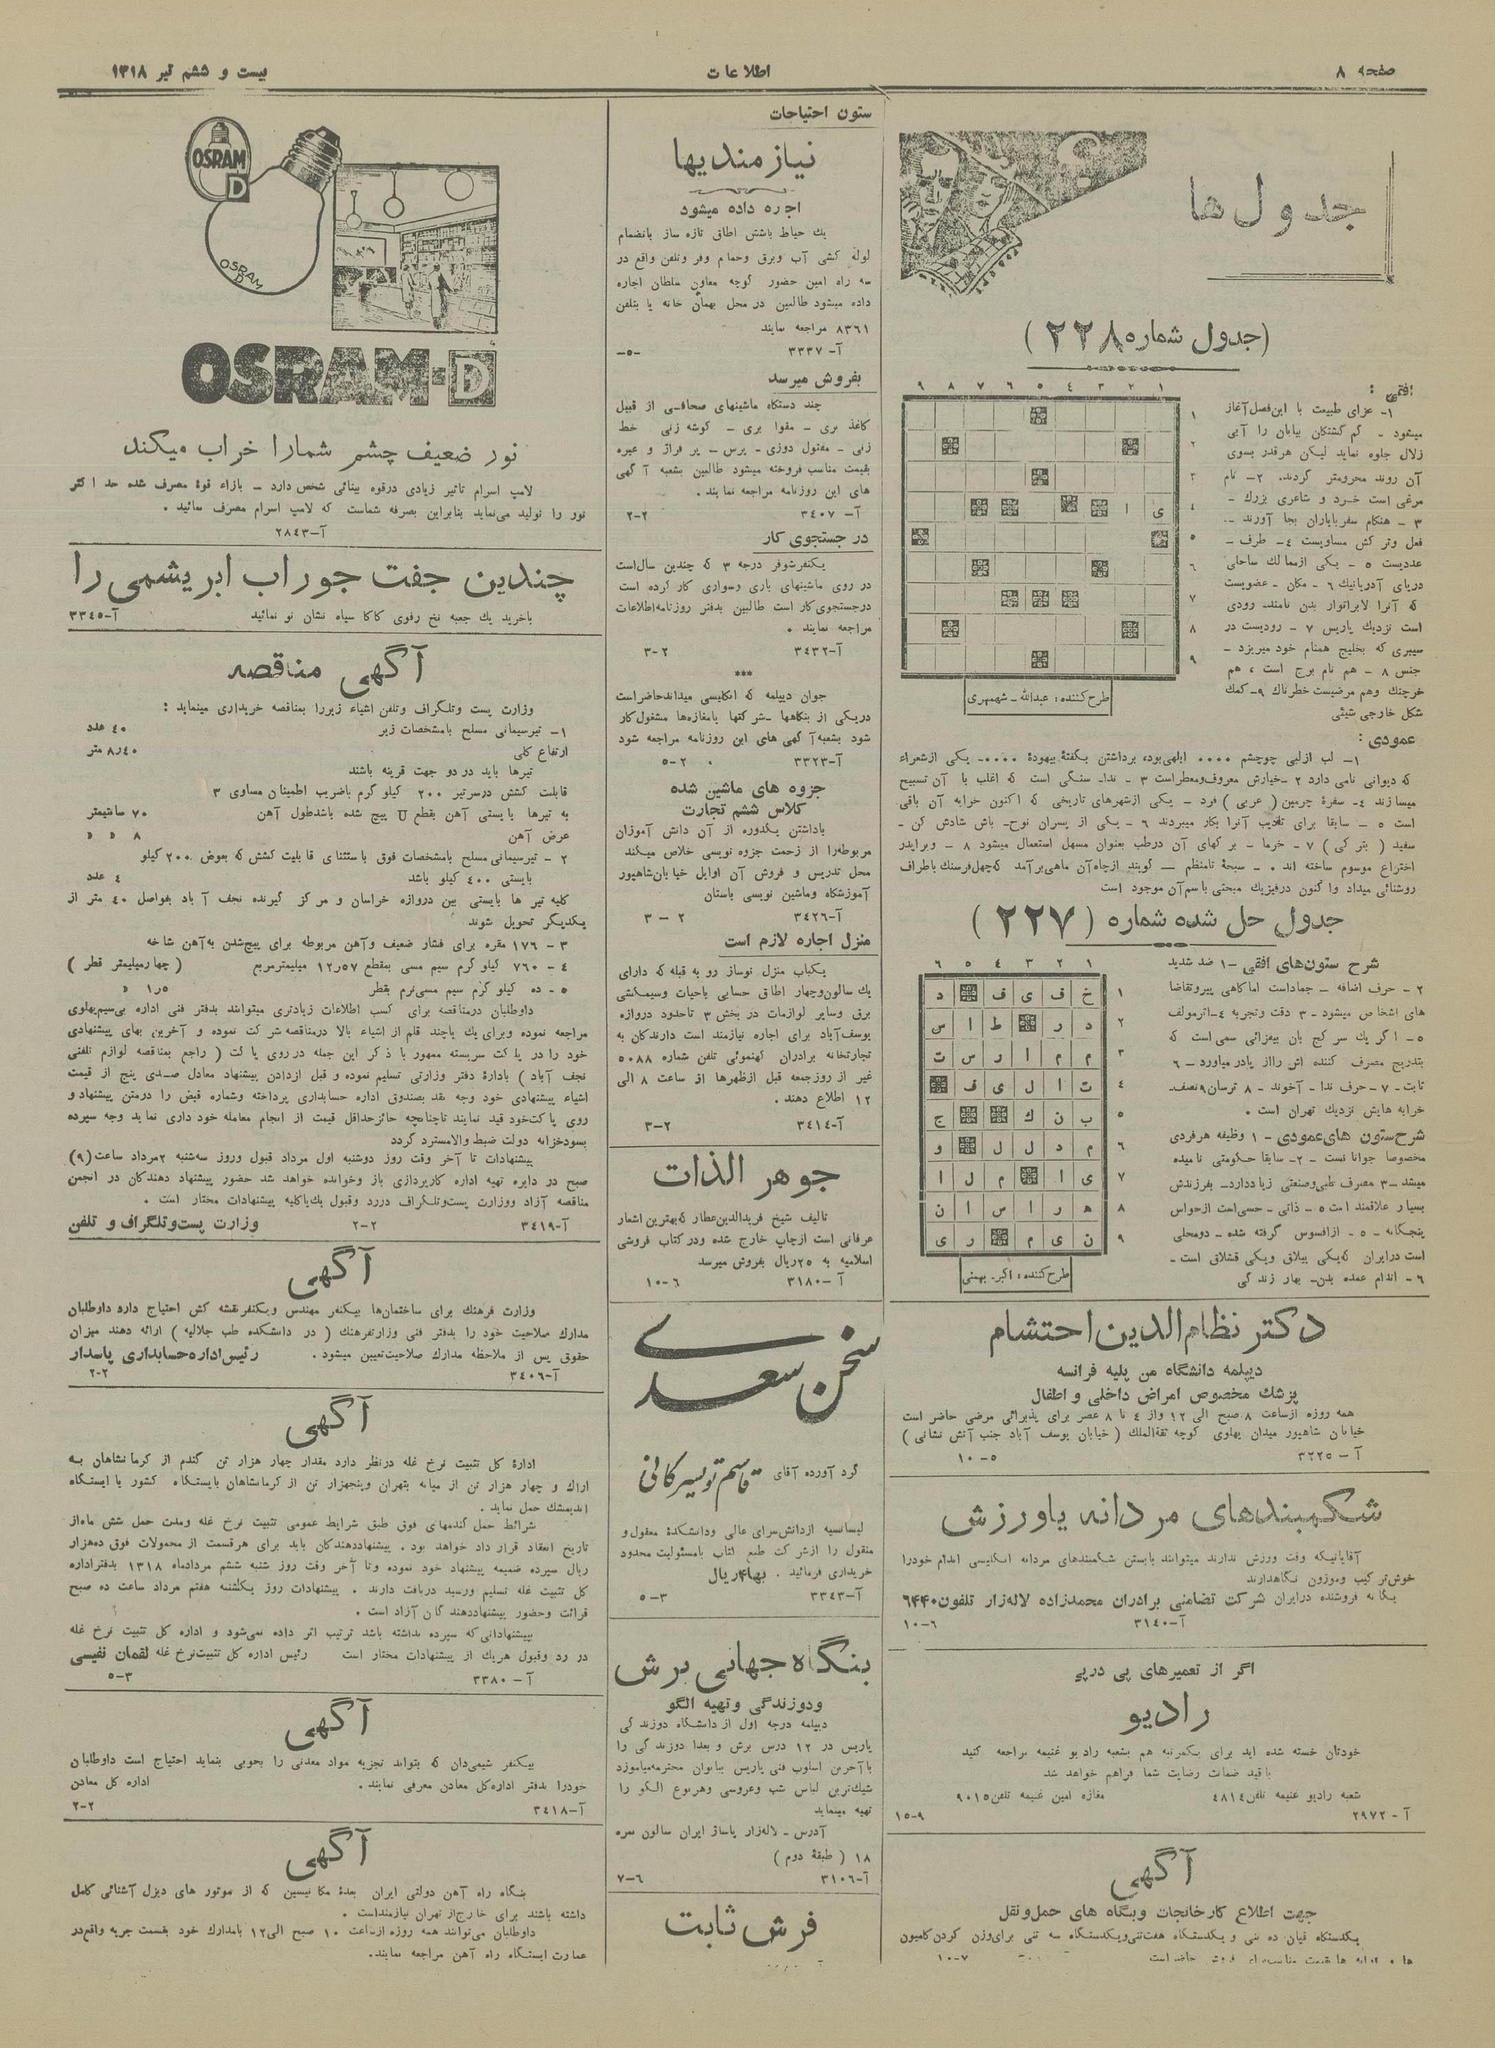 صفحه ۸
اطلاعات
بیست و ششم تیر ۱۳۱۸
جدول ها
(جدول شماره ۲۲۸)
افقی :
۱- عزای طبیعت با این‌فصل آغاز
میشود - گم گشتگان بیابان را آبی
زلال جلوه نماید لیکن هرقدر بسوی
آن روند محرومتر گردند. ۲- نام
مرغی است خرد و شاعری بزرك -
۳ - هنگام سفر بایاران بجا آورند -
فعل وتر کش مساویست ٤- طرف -
عددیست ٥ - یکی ازممالك ساحلی
دریای آدریاتیك ٦ - مکان - عضویست
که آنرا لابراتوار بدن نامند- رودی
است نزدیك پاریس ۷ - رودیست در
سیبری که بخلیج همنام خود میریزد -
جنس ۸ - هم نام برج است ، هم
خرچنك وهم مرضیست خطرناك ۹- کمك
شکل خارجی شیئی
۱ ۲ ۳ ٤ ٥ ٦ ۷ ۸ ۹
۱
۲
۳
٤
٥
٦
۷
۸
۹
ی ا
طرح‌کننده : عبدالله - شهمیری
عمودی :
۱- لب ازلبی چوچشم .... ابلهی‌بود، برداشتن بگفتهٔ بیهودهٔ ....- یکی ازشعراء
که دیوانی نامی دارد ۲ -خیارش معروف‌ومعطراست ۳ - ندا- سنگی است که اغلب با آن تسبیح
میسازند ٤- سفرهٔ چرمین ( عربی ) فرد - یکی ازشهرهای تاریخی که اکنون خرابه آن باقی
است ٥ - سابقا برای تادیب آنرا بکار میبردند ٦ - یکی از پسران نوح- باش شادش کن -
سفید ( بتر کی ) ۷ - خرما - بر گهای آن درطب بعنوان مسهل استعمال میشود ۸ - وبرایدر
اختراع موسوم ساخته اند . - سبحهٔ نامنظم - گویند ازچاه‌آن ماهی‌برآمد که‌چهل‌فرسنك باطراف
روشنائی میداد وا کنون درفیزیك مبحثی باسم‌آن موجود است
جدول حل شده شماره ( ۲۲۷ )
شرح ستون‌های افقی -۱ ضد شدید
۲ - حرف اضافه - جماداست اما‌کاهی پیروتقاضا
های اشخاص میشود- ۳ دقت وتجربه ٤-اثرمولف
٥ - ا گر یك سر کج بان بیفزائی سمی است که
بتدریج مصرف کننده اش رااز پادر میاورد - ٦
ثابت - ۷ - حرف ندا - آخوند - ۸ ترسان۹نصف-
خرابه هایش نزدیك تهران است .
شرح ستون های‌عمودی - ۱ وظیفه هرفردی
مخصوصا جوانا نست - ۲- سابقا حکومتی نامیده
میشد -۳ مصرف طبی‌وصنعتی زیا ددارد- بفرزندش
بسیا ر علاقمند است ٥ - ذاتی - حسی‌است ازحواس
پنجگانه - ٥ - ازافسوس گرفته شده - دومحلی
است درایران که‌یکی ییلاق ویکی قشلاق است -
٦ - اندام عمده بدن- بهار زند گی
۱ ۲ ۳ ٤ ٥ ٦
خ ف ی ف د ۱
د ر ط ا س ۲
م م ا ر س ت ۳
ت ا ل ی ف ٤
ب ن ك ج ٥
م د ل ل و ٦
ی ا م ل ا ۷
ه ر ا س ا ن ۸
ن ی م ر ی ۹
طرح‌کننده : اکبر- بهمنی
دکتر نظام الدین احتشام
دیپلمه دانشگاه من پلیه فرانسه
پزشك مخصوص امراض داخلی و اطفال
همه روزه ازساعت ۸ صبح الی ۱۲ واز ٤ تا ۸ عصر برای پذیرائی مرضی حاضر است
خیابان شاهپور میدان پهلوی کوچه ثقةالملك ( خیابان یوسف آباد جنب آتش نشانی )
آ - ۳۲۲٥
٥-۱۰
شکمبندهای مردانه یاورزش
آقایانیکه وقت ورزش ندارند میتوانند بابستن شکمبندهای مردانه انگلیسی اندام خودرا
خوش‌ترکیب وموزون نگاهدارند
یگانه فروشنده درایران شرکت تضامنی برادران محمدزاده لاله‌زار تلفون ٦٤٤۰
آ-۳۱٤۰
٦-۱۰
اگر از تعمیرهای پی درپی
رادیو
خودتان خسته شده اید برای یکمرتبه هم بشعبه رادیو غنیمه مراجعه کنید
با قید ضمانت رضایت شما فراهم خواهد شد
شعبه رادیو غنیمه تلفن ٤۸۱٤ مغازه امین غنیمه تلفن ۹۰۱٥
آ - ۲۹۷۲
۹-۱٥
آگهی
جهت اطلاع کارخانجات وبنگاه های حمل‌ونقل
یکدستگاه قپان ده تنی و یکدستگاه هفت‌تنی‌ویکدستگاه سه تنی برای‌وزن کردن‌کامیون
۷-۱۰
ستون احتیاجات
نیازمندیها
اجاره داده میشود
یك حیاط باشش اطاق تازه ساز بانضمام
لوله کشی آب وبرق وحمام وفر وتلفن واقع در
سه راه امین حضور کوچه معاون سلطان اجاره
داده میشود طالبین در محل بهمان خانه یا بتلفن
۸۳٦۱ مراجعه نمایند
آ- ۳۳۳۷
-٥-
بفروش میرسد
چند دستگاه ماشینهای صحافی از قبیل
کاغذ بری - مقوا بری - گوشه زنی خط
زنی - مفتول دوزی - پرس - پر فراژ و غیره
بقیمت مناسب فروخته میشود طالبین بشعبه آ گهی
های این روزنامه مراجعه نمایند.
آ- ۳٤۰۷
۲-۲
در جستجوی کار
یکنفرشوفر درجه ۳ که چندین سال‌است
در روی ماشینهای باری وسواری کار کرده است
درجستجوی‌کار است طالبین بدفتر روزنامه‌اطلاعات
مراجعه نمایند .
آ-۳٤۳۲
۲-۳
***
جوان دیپلمه که انگلیسی میداندحاضراست
دریکی از بنگاهها -شرکتها یامغازه‌ها مشغول‌کار
شود بشعبه‌آ گهی های این روزنامه مراجعه شود
آ-۳۳۲۳
۲-٥
جزوه های ماشین شده
کلاس ششم تجارت
باداشتن یکدوره از آن دانش آموزان
مربوطه‌را از زحمت جزوه نویسی خلاص میکند
محل تدریس و فروش آن اوایل خیابان‌شاهپور
آموزشگاه وماشین نویسی باستان
آ-۳٤۲٦
۲ - ۳
منزل اجاره لازم است
یکباب منزل نوساز رو به قبله که دارای
یك سالون‌وچهار اطاق حسابی باحیات وسیمکشی
برق وسایر لوازمات در بخش ۳ تاحدود دروازه
یوسف‌آباد برای اجاره نیازمند است دارندکان به
تجارتخانه برادران کهنموئی تلفن شماره ٥۰۸۸
غیر از روزجمعه قبل ازظهرها از ساعت ۸ الی
۱۲ اطلاع دهند.
آ-۳٤۱٤
۲-۳
جوهر الذات
تالیف شیخ فریدالدین‌عطار که‌بهترین اشعار
عرفانی است ازچاپ خارج شده ودر کتاب فروشی
اسلامیه به ۲٥ریال بفروش میرسد
آ -۳۱۸۰
٦-۱۰
سخن سعدی
گرد آورده آقای قاسم تویسرکانی
لیسانسیه ازدانش‌سرای عالی ودانشکدهٔ معقول‌و
منقول را ازشرکت طبع کتاب بامسئولیت محدود
خریداری فرمائید . بها٤ریال
آ-۳۳٤۳
۳-٥
بنگاه جهانی برش
ودوزندگی وتهیه الگو
دیپلمه درجه اول از دانشگاه دوزند گی
پاریس در ۱۲ درس برش و بعدا دوزند گی را
باآخرین اسلوب فنی پاریس ببانوان محترمه‌میاموزد
شیك‌ترین لباس شب وعروسی وهرنوع الگو را
تهیه مینماید
آدرس - لاله‌زار پاساژ ایران سالون نمره
۱۸ ( طبقهٔ دوم )
آ-۳۱۰٦
٦-۷
فرش ثابت
OSRAM
D
OSRAM
D
OSRAM-D
نور ضعیف چشم شمارا خراب میکند
لامپ اسرام تاثیر زیادی درقوه بینائی شخص دارد - بازاء قوهٔ مصرف شده حد اکثر
نور را تولید می‌نماید بنابراین بصرفه شماست که لامپ اسرام مصرف نمائید .
آ-۲۸٤۳
چندین جفت جوراب ابریشمی را
باخرید یك جعبه نخ رفوی کاکا سیاه نشان نو نمائید
آ-۳۳٤٥
آگهی مناقصه
وزارت پست وتلگراف وتلفن اشیاء زیررا بمناقصه خریداری مینماید :
۱- تیرسیمانی مسلح بامشخصات زیر ٤۰ عدد
ارتفاع کلی ۸٫٤۰ متر
تیرها باید در دو جهت قرینه باشند
قابلیت کشش درسرتیر ۲۰۰ کیلو گرم باضریب اطمینان مساوی ۳
به تیرها بایستی آهن بقطع U پیچ شده باشدطول آهن ۷۰ سانتیمتر
عرض آهن ۸ » »
۲ - تیرسیمانی مسلح بامشخصات فوق باستثنای قابلیت کشش که بعوض ۲۰۰ کیلو
بایستی ٤۰۰ کیلو باشد ٤ عدد
کلیه تیر ها بایستی بین دروازه خراسان و مرکز گیرنده نجف آباد بفواصل ٤۰ متر از
یکدیگر تحویل شوند
۳ - ۱۷٦ مقره برای فشار ضعیف وآهن مربوطه برای پیچ‌شدن به‌آهن شاخه
٤ - ۷٦۰ کیلو گرم سیم مسی بمقطع ۱۲٫٥۷ میلیمترمربع ( چهارمیلیمتر قطر )
٥ - ده کیلو گرم سیم مسی‌نرم بقطر ۱٫٥ »
داوطلبان درمناقصه برای کسب اطلاعات زیادتری میتوانند بدفتر فنی اداره بی‌سیم‌پهلوی
مراجعه نموده وبرای یك یاچند قلم از اشیاء بالا درمناقصه‌شر کت نموده و آخرین بهای پیشنهادی
خود را در پا کت سربسته ممهور با ذکر این جمله درروی پا کت ( راجع بمناقصه لوازم تلفنی
نجف آباد ) بادارهٔ دفتر وزارتی تسلیم نموده و قبل ازدادن پیشنهاد معادل صدی پنج از قیمت
اشیاء پیشنهادی خود وجه نقد بصندوق اداره حسابداری پرداخته وشماره قبض را درمتن پیشنهادو
روی پا کت‌خود قید نمایند تاچنانچه حائزحداقل قیمت از انجام معامله خود داری نماید وجه سپرده
بسودخزانه دولت ضبط والامسترد گردد
پیشنهادات تا آخر وقت روز دوشنبه اول مرداد قبول وروز سه‌شنبه ۲مرداد ساعت (۹)
صبح در دایره تهیه اداره کارپردازی باز وخوانده خواهد شد حضور پیشنهاد دهندکان در انجمن
مناقصه آزاد ووزارت پست‌وتلگراف دررد وقبول یك‌یاکلیه پیشنهادات مختار است .
آ-۳٤۱۹
۲-۲
وزارت پست‌وتلگراف و تلفن
آگهی
وزارت فرهنگ برای ساختمان‌ها بیکنفر مهندس ویکنفرنقشه کش احتیاج دارد داوطلبان
مدارك صلاحیت خود را بدفتر فنی وزارت‌فرهنك ( در دانشکده طب جلالیه ) ارائه دهند میزان
حقوق پس از ملاحظه مدارك صلاحیت‌تعیین میشود . رئیس‌اداره‌حسابداری پاسدار
آ-۳٤۰٦
۲-۲
آگهی
ادارهٔ کل تثبیت نرخ غله درنظر دارد مقدار چهار هزار تن گندم از کرمانشاهان به
اراك و چهار هزار تن از میانه بتهران وپنجهزار تن از کرمانشاهان بایستگاه کشور یا ایستگاه
اندیمشك حمل نماید .
شرائط حمل گندمهای فوق طبق شرایط عمومی تثبیت نرخ غله ومدت حمل شش ماه‌از
تاریخ انعقاد قرار داد خواهد بود . پیشنهاددهندکان باید برای هرقسمت از محمولات فوق ده‌هزار
ریال سپرده ضمیمه پیشنهاد خود نموده وتا آخر وقت روز شنبه ششم مردادماه ۱۳۱۸ بدفتراداره
کل تثبیت غله تسلیم ورسید دریافت دارند . پیشنهادات روز یکشنبه هفتم مرداد ساعت ده صبح
قرائت وحضور پیشنهاددهند گان آزاد است .
بپیشنهاداتی‌که سپرده نداشته باشد ترتیب اثر داده نمی‌شود و اداره کل تثبیت نرخ غله
در رد وقبول هریك از پیشنهادات مختار است رئیس اداره کل تثبیت‌نرخ غله لقمان نفیسی
آ - ۳۳۸۰
۳-٥
آگهی
بیکنفر شیمی‌دان که بتواند تجزیه مواد معدنی را بخوبی بنماید احتیاج است داوطلبان
خودرا بدفتر اداره‌کل معادن معرفی نمایند . اداره کل معادن
آ-۳٤۱۸
۲-۲
آگهی
بنگاه راه آهن دولتی ایران بعدهٔ مکانیسین که از موتور های دیزل آشنائی کامل
داشته باشند برای خارج‌از تهران نیازمنداست .
داوطلبان می‌توانند همه روزه ازساعت ۱۰ صبح الی‌۱۲ بامدارك خود بقسمت جریه واقع‌در
عمارت ایستگاه راه آهن مراجعه نمایند.